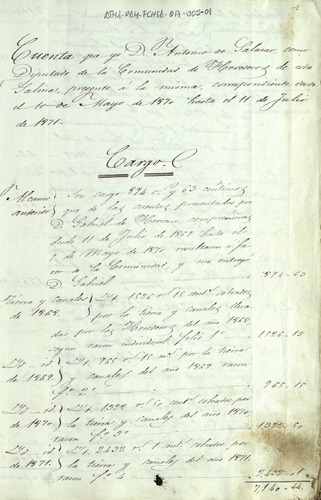 ASHA-DAH-FCHSA-017-005-01
Cuenta que yo D. Antonio de Salazar como
Diputado de la Comunidad de Herederos de esta
Salinas, presento á la misma, correspondiente desde
el 10 de Mayo de 1870 hasta el 11 de Julio
de 1871.
Cargo
Alcance anterior } Son cargo 894 r. y 63 centimos
que de las cuentas presentadas por
D. Gabriel de Herran comprensivas
desde 11 de Julio de 1869 hasta el
9 de Mayo de 1870 resultaron á favor
de la Comunidad, y me entregó
D. Gabriel 894-63
Tierra y canales de 1868. } Id. 1526 r. 15 cent. cobrados
por la tierra y canales
por los Herederos del año 1868,
segun razon individual folio 1º 1526-15
Id. id. de 1869. } Id. 965 r. 15 por la tierra
y canales del año 1869 razon
fº 2º 965-15
Id. id. de 1870 } Id. 1322 r. 50 cent. cobrados por
la tierra y canales del año 1870
razon fº 3º 1322-50
Id. id. de 1871. } Id. 2432 r. 1 cent. cobrados por
la tierra y canales del año 1871
razon fº 4º 2432-01
7140-44